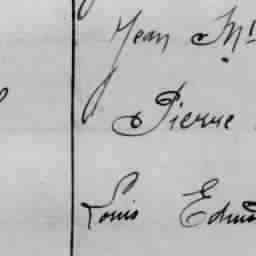 Jean M
Pierre
Louis Edmo